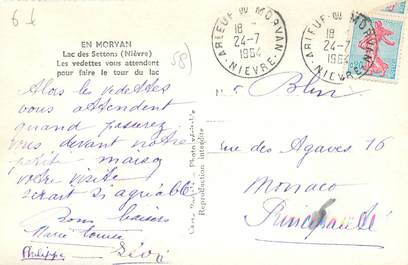 6
58
EN MORVAN
Lac des Settons (Nièvre)
Les vedettes vous attendent
pour faire le tour du lac
Alors les vedettes
vous attendent
quand passerez
vous devant notre
petite maison
votre visite
serait si agréable
Bons baisers
Marie Louise
Philippe
Carte Postale - Photo véritable
Reproduction interdite
ARLEUF DU MORVAN
18 -
24-7
1964
NIEVRE
ARLEUF DU MORVAN
18 -
24-7
1964
NIEVRE
rue des Agaves 16
Monaco
Principauté